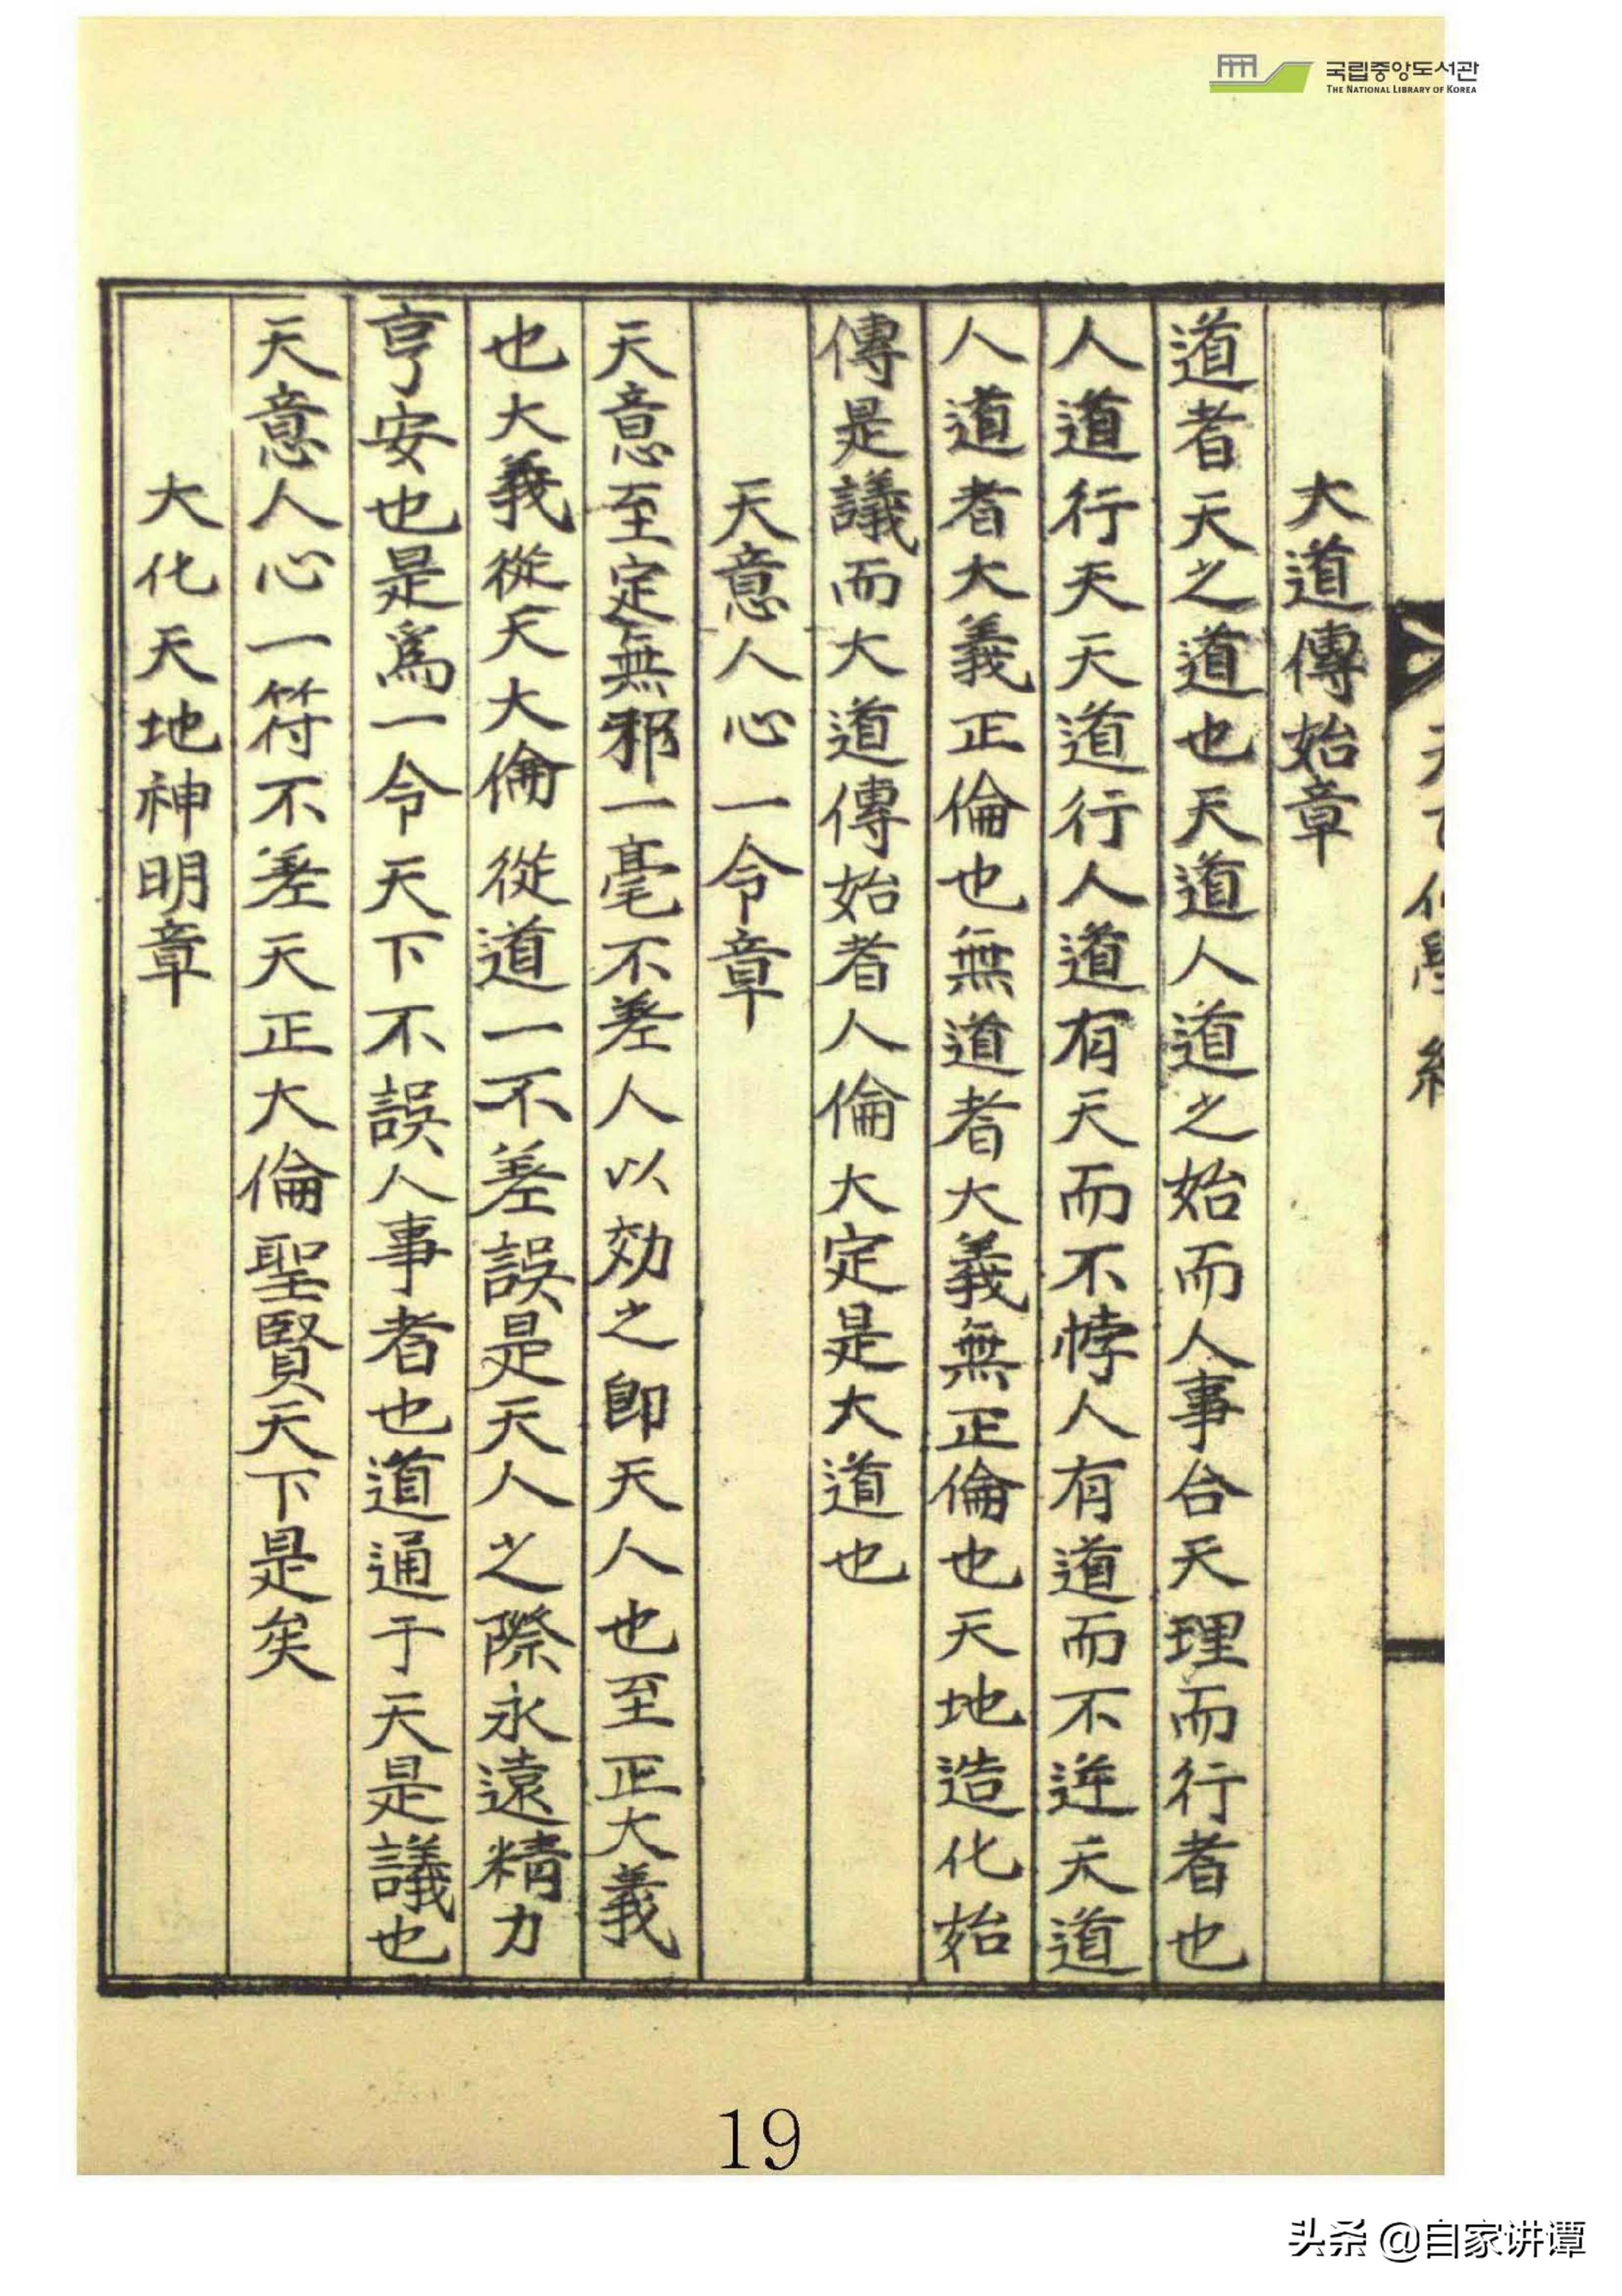 국립중앙도서관
THE NATIONAL LIBRARY OF KOREA
大道傳始章
道者天之道也天道人道之始而人事合天理而行者也
人道行天天道行人道有天而不悖人有道而不逆天道
人道者大義正倫也無道者大義無正倫也天地造化始
傳是議而大道傳始者人倫大定是大道也
天意人心一令章
天意至定無邪一毫不差人以効之即天人也至正大義
也大義從天大倫從道一不差誤是天人之際永遠精力
亨安也是為一令天下不誤人事者也道通于天是議也
天意人心一符不差天正大倫聖賢天下是矣
大化天地神明章
19
头条 @自家讲谭